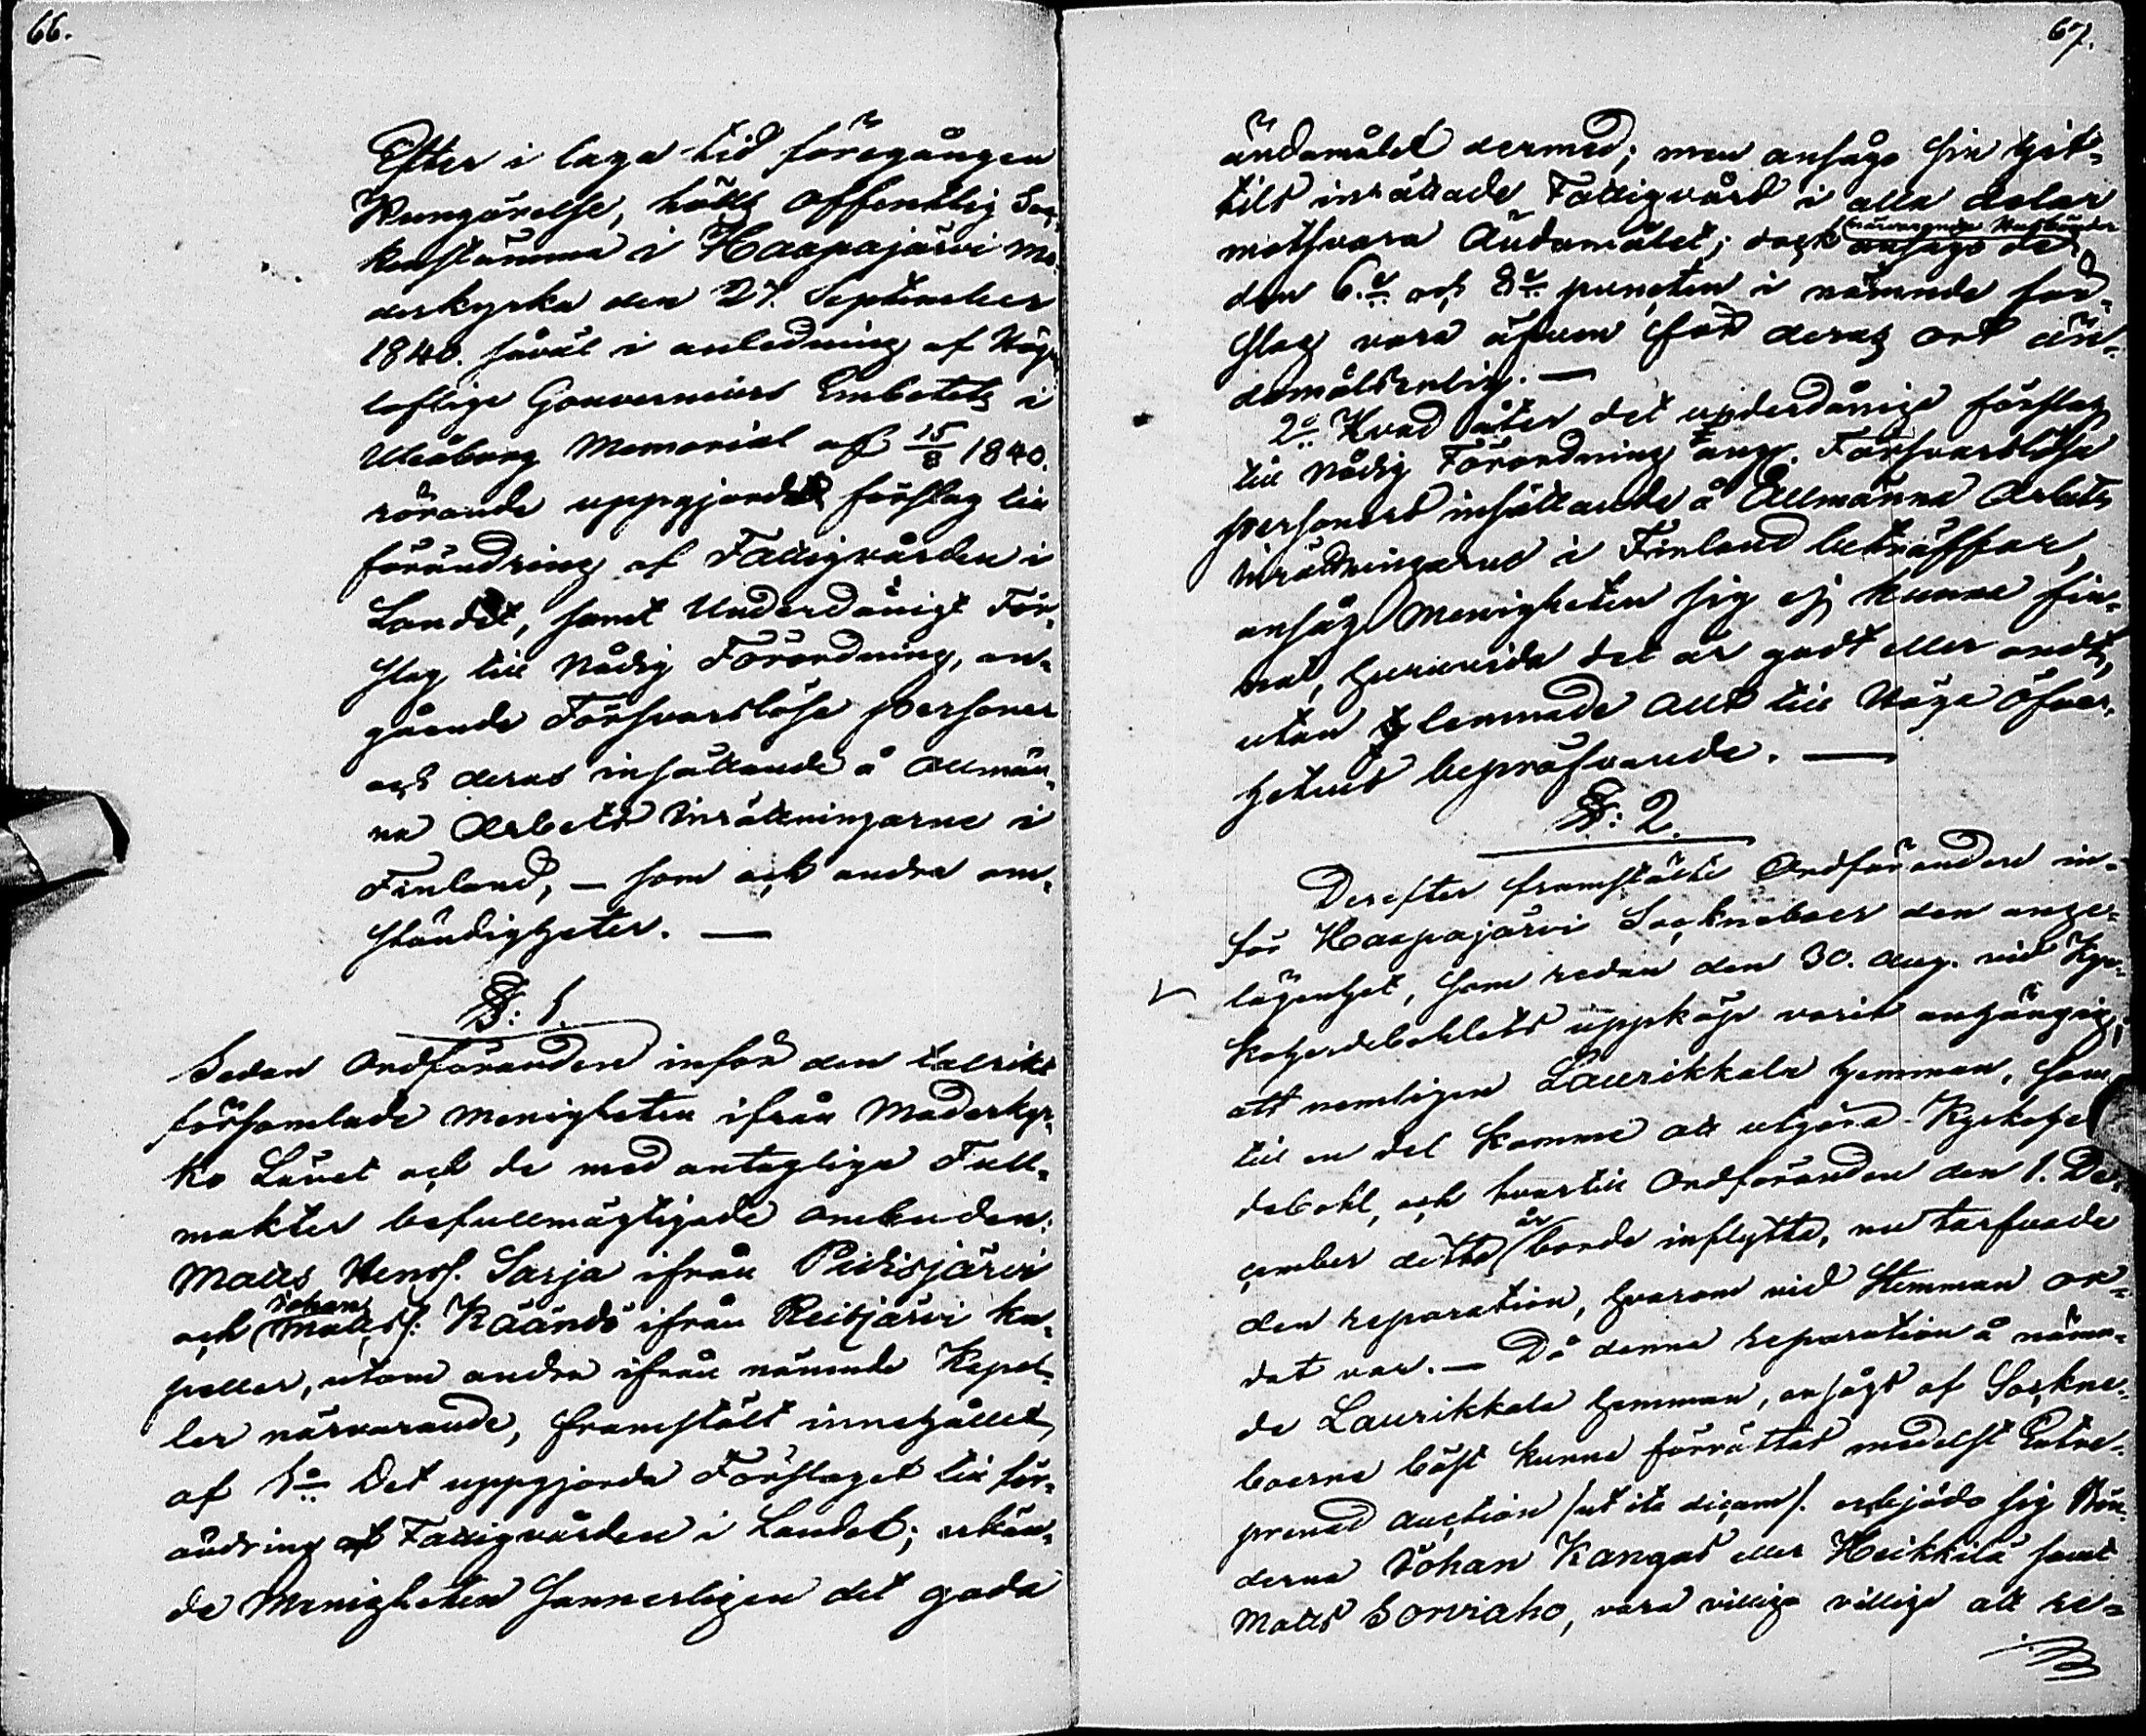 66.
Efter i laga tid föregången
Kungörelse, hölls offentlig Soc-
kenstämma i Haapajärvi Mo-
derkyrka den 27. September
1840. såväl i anledning af Hög-
loflige Gouverneurs Embetets i
Uleåborg Memorial af 15/8 1840.
rörande uppgjordt förslag till
förändring af Fattigvården i
Landet, samt Underdånigt För-
slag till Nådig Förordning, an-
gående Försvarslöse personer
och deras insättande å Allmän-
na Arbets Inrättningarne i
Finland, — som ock andra om-
ständigheter. —
§: 1.
Sedan Ordföranden inför den talrikt
församlade menigheten ifrån Moderkyr-
ko Länet och de med antagliga Full-
makter befullmägtigade ombuden:
Matts Henrs. Sarja ifrån Pidisjärvi
Johan
och Matts s: Kääntö ifrån Reisjärvi ka-
peller, utom andra ifrån nämnde Kapel-
ler närvarande, framstält innehållet
af 1o Det uppgjorda Förslaget till för-
ändring af Fattigvården i Landet; erkän-
de Menigheten sannerligen det goda
67.
ändamålet dermed; men ansågo sin hit-
tils inrättade Fattigvård i alla delar
närvarande Husbönder
motsvara Ändamålet; dock ansågo de
den 6.e och 8e puncten i nämnde för-
slag vara äfven för deras ort än-
damålsenlig. —
2o Hvad åter det underdånige förslag
till Nådig Förordning ang. Försvarslösa
personers insättande å Allmänna Arbets
inrättningarne i Finland beträffar,
ansåg Menigheten sig ej kunna fin-
na, huruvida det är godt eller ondt,
utan lemnade allt till Höga Öfver-
hetens bepröfvande. —
§: 2.
Derefter framstälte Ordföranden in-
för Haapajärvi Sockneboer den ange-
lägenhet, som redan den 30. Aug. vid Kyr-
koherdebohlets uppköp varit anhängig,
att nemligen Laurikkala hemman, som
till en del komme att utgöra Kyrkoher
debohl, och hvartill Ordföranden den 1. De-
år
cember detta borde inflytta, nu tarfvade
den reparation, hvarom vid Stemman or-
dat var. — Då denna reparation å nämn-
de Laurikkala hemman, ansågs af Sockne-
boerna bäst kunna förrättas medelst Entre-
prenad auction /ut ita dicam/. erbjödo sig Bön-
derna Johan Kangas eller Heikkilä samt
Matts Sorviaho, vara villige villige att re-